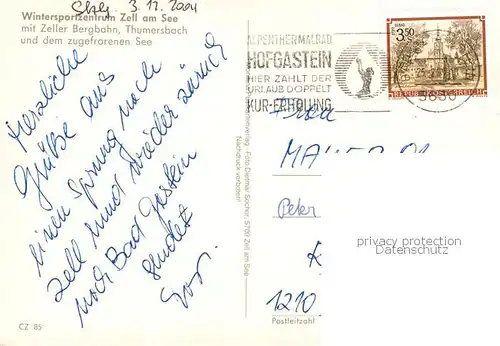 Sbg 3.12.2004
Wintersportzentrum Zell am See
mit Zeller Bergbahn, Thumersbach
und dem zugefrorenen See
Herzliche
Grüße aus
einen Sprung nach
Zell und wieder zurück
nach Bad Gastein
sendet
CZ 85
Foto Dietmar Socher, 5700 Zell am See
Nachdruck verboten!
ALPENTHERMALBAD
HOFGASTEIN
HIER ZÄHLT DER
URLAUB DOPPELT
KUR-ERHOLUNG
S 3.50
REPUBLIK ÖSTERREICH
5630
Peter
privacy protection
Datenschutz
1210
Postleitzahl